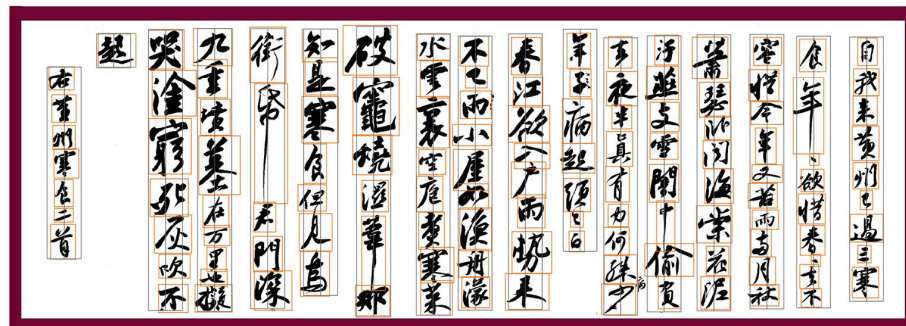 自我来黄州已過三寒
食年〻欲惜春〻去不
容惜今年又苦雨两月秋
蕭瑟卧聞海棠花泥
汙燕支雪闇中偷負
去夜半真有力何殊少病
年子病起頭已白
春江欲入户雨勢来
不已雨小屋如漁舟濛
水雲裏空庖煮寒菜
破竈燒濕葦那
知是寒食但見烏
銜帋君門深
九重墳墓在万里也擬
哭塗窮死灰吹不
起
右黄州寒食二首